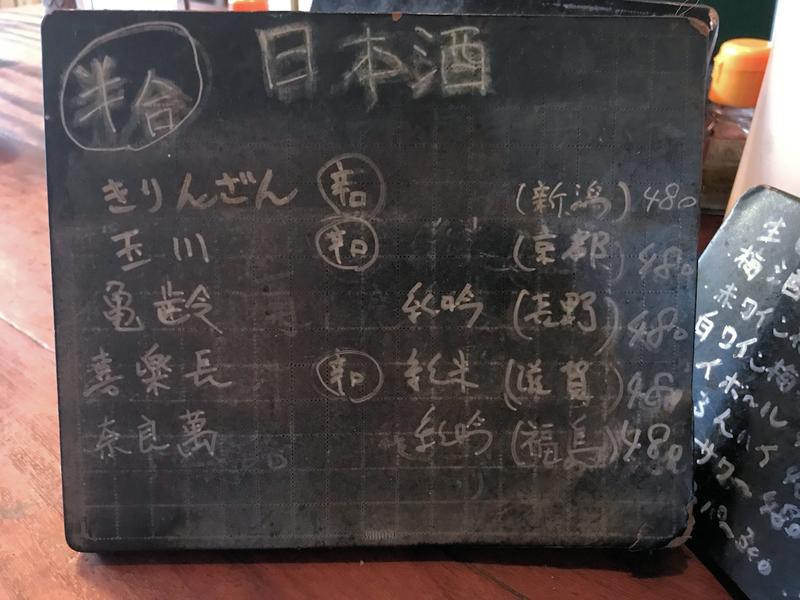 半合
日本酒
きりんざん 辛口 (新潟) 480
玉川 辛口 (京都) 480
亀齢 純吟 (吉野) 480
喜楽長 辛口 純米 (滋賀) 480
奈良萬 純吟 (福島) 480
生
梅酒
赤ワイン
白ワイン 梅
イボール
サワー 480